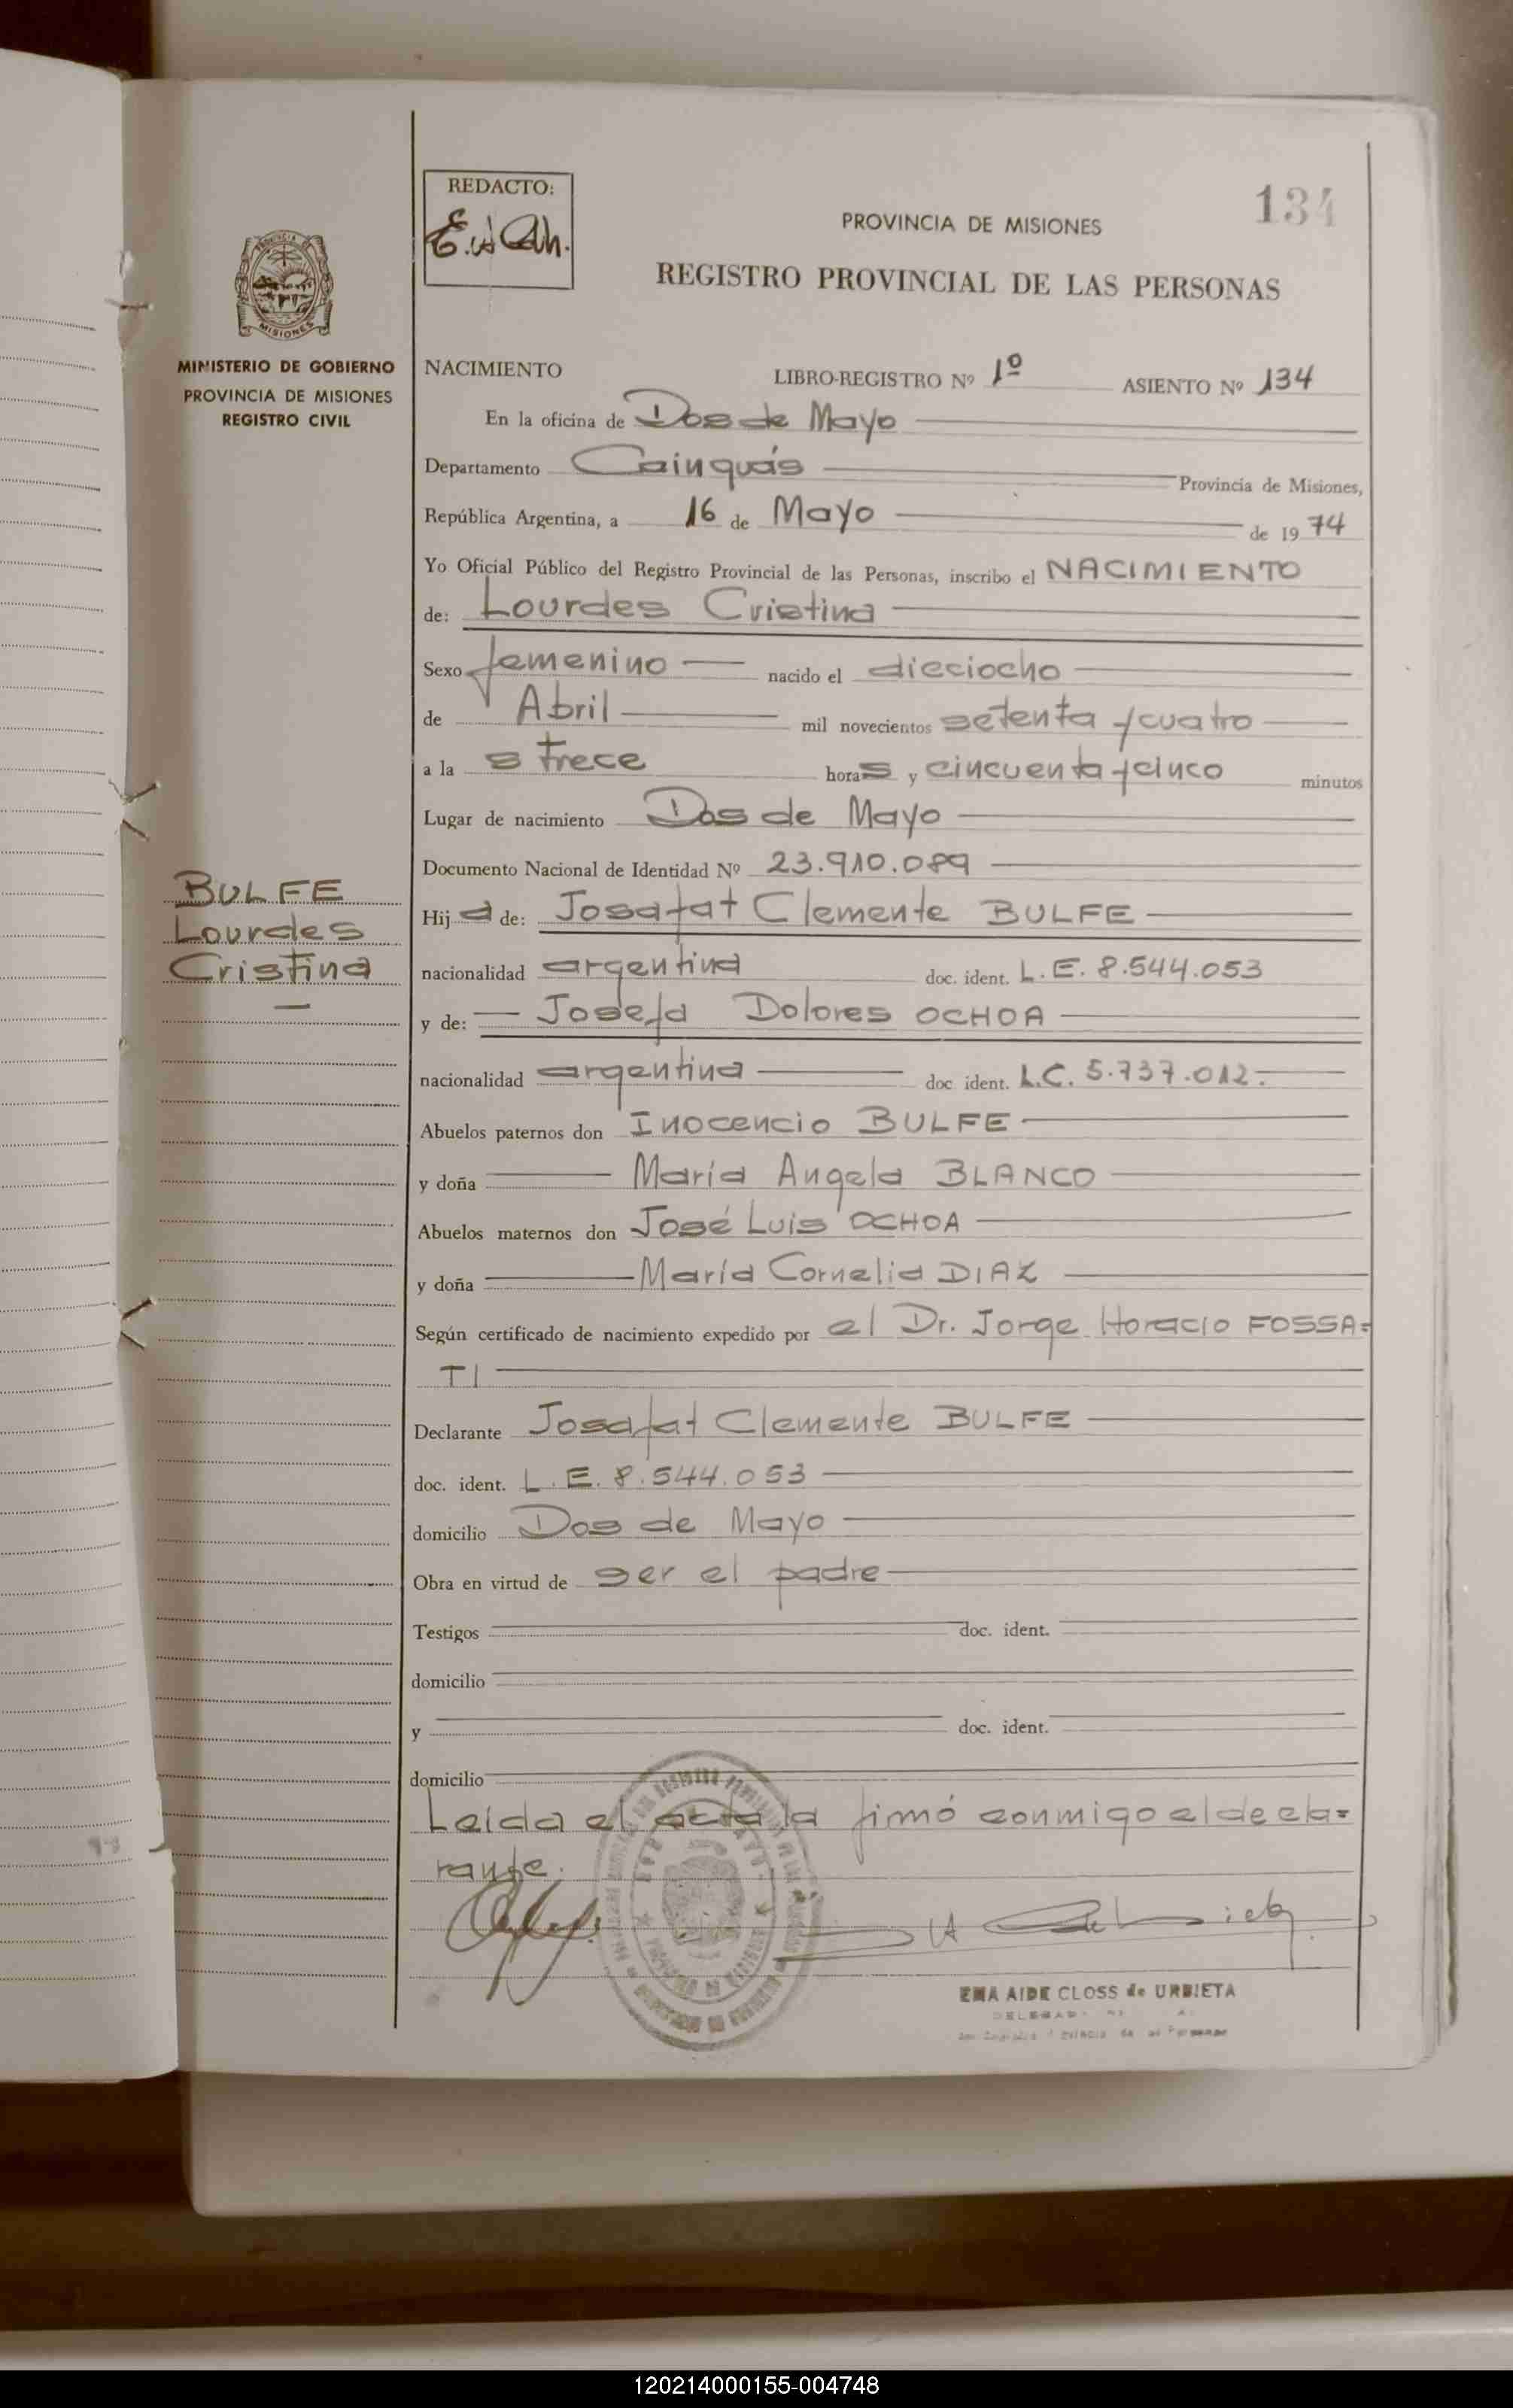 134
REDACTO:
PROVINCIA DE MISIONES
REGISTRO PROVINCIAL DE LAS PERSONAS
MISIONES
MINISTERIO DE GOBIERNO
PROVINCIA DE MISIONES
REGISTRO CIVIL
NACIMIENTO LIBRO-REGISTRO Nº 1º ASIENTO Nº 134
En la oficina de Dos de Mayo
Departamento Cainguás Provincia de Misiones,
República Argentina, a 16 de Mayo de 1974
Yo Oficial Público del Registro Provincial de las Personas, inscribo el NACIMIENTO
de: Lourdes Cristina
Sexo femenino nacido el dieciocho
de Abril mil novecientos setenta y cuatro
a la s trece horas y cincuenta y cinco minutos
Lugar de nacimiento Dos de Mayo
Documento Nacional de Identidad Nº 23.910.089
BULFE
Lourdes
Cristina
Hija de: Josafat Clemente BULFE
nacionalidad argentina doc. ident. L.E. 8.544.053
y de: Josefa Dolores OCHOA
nacionalidad argentina doc. ident. L.C. 5.737.012.
Abuelos paternos don Inocencio BULFE
y doña María Angela BLANCO
Abuelos maternos don José Luis OCHOA
y doña María Cornelia DIAZ
Según certificado de nacimiento expedido por el Dr. Jorge Horacio FOSSA=
TI
Declarante Josafat Clemente BULFE
doc. ident. L.E. 8.544.053
domicilio Dos de Mayo
Obra en virtud de ser el padre
Testigos doc. ident.
domicilio
y doc. ident.
domicilio
Leida el acta la firmó conmigo el decla=
rante.
EMA AIDE CLOSS de URBIETA
120214000155-004748